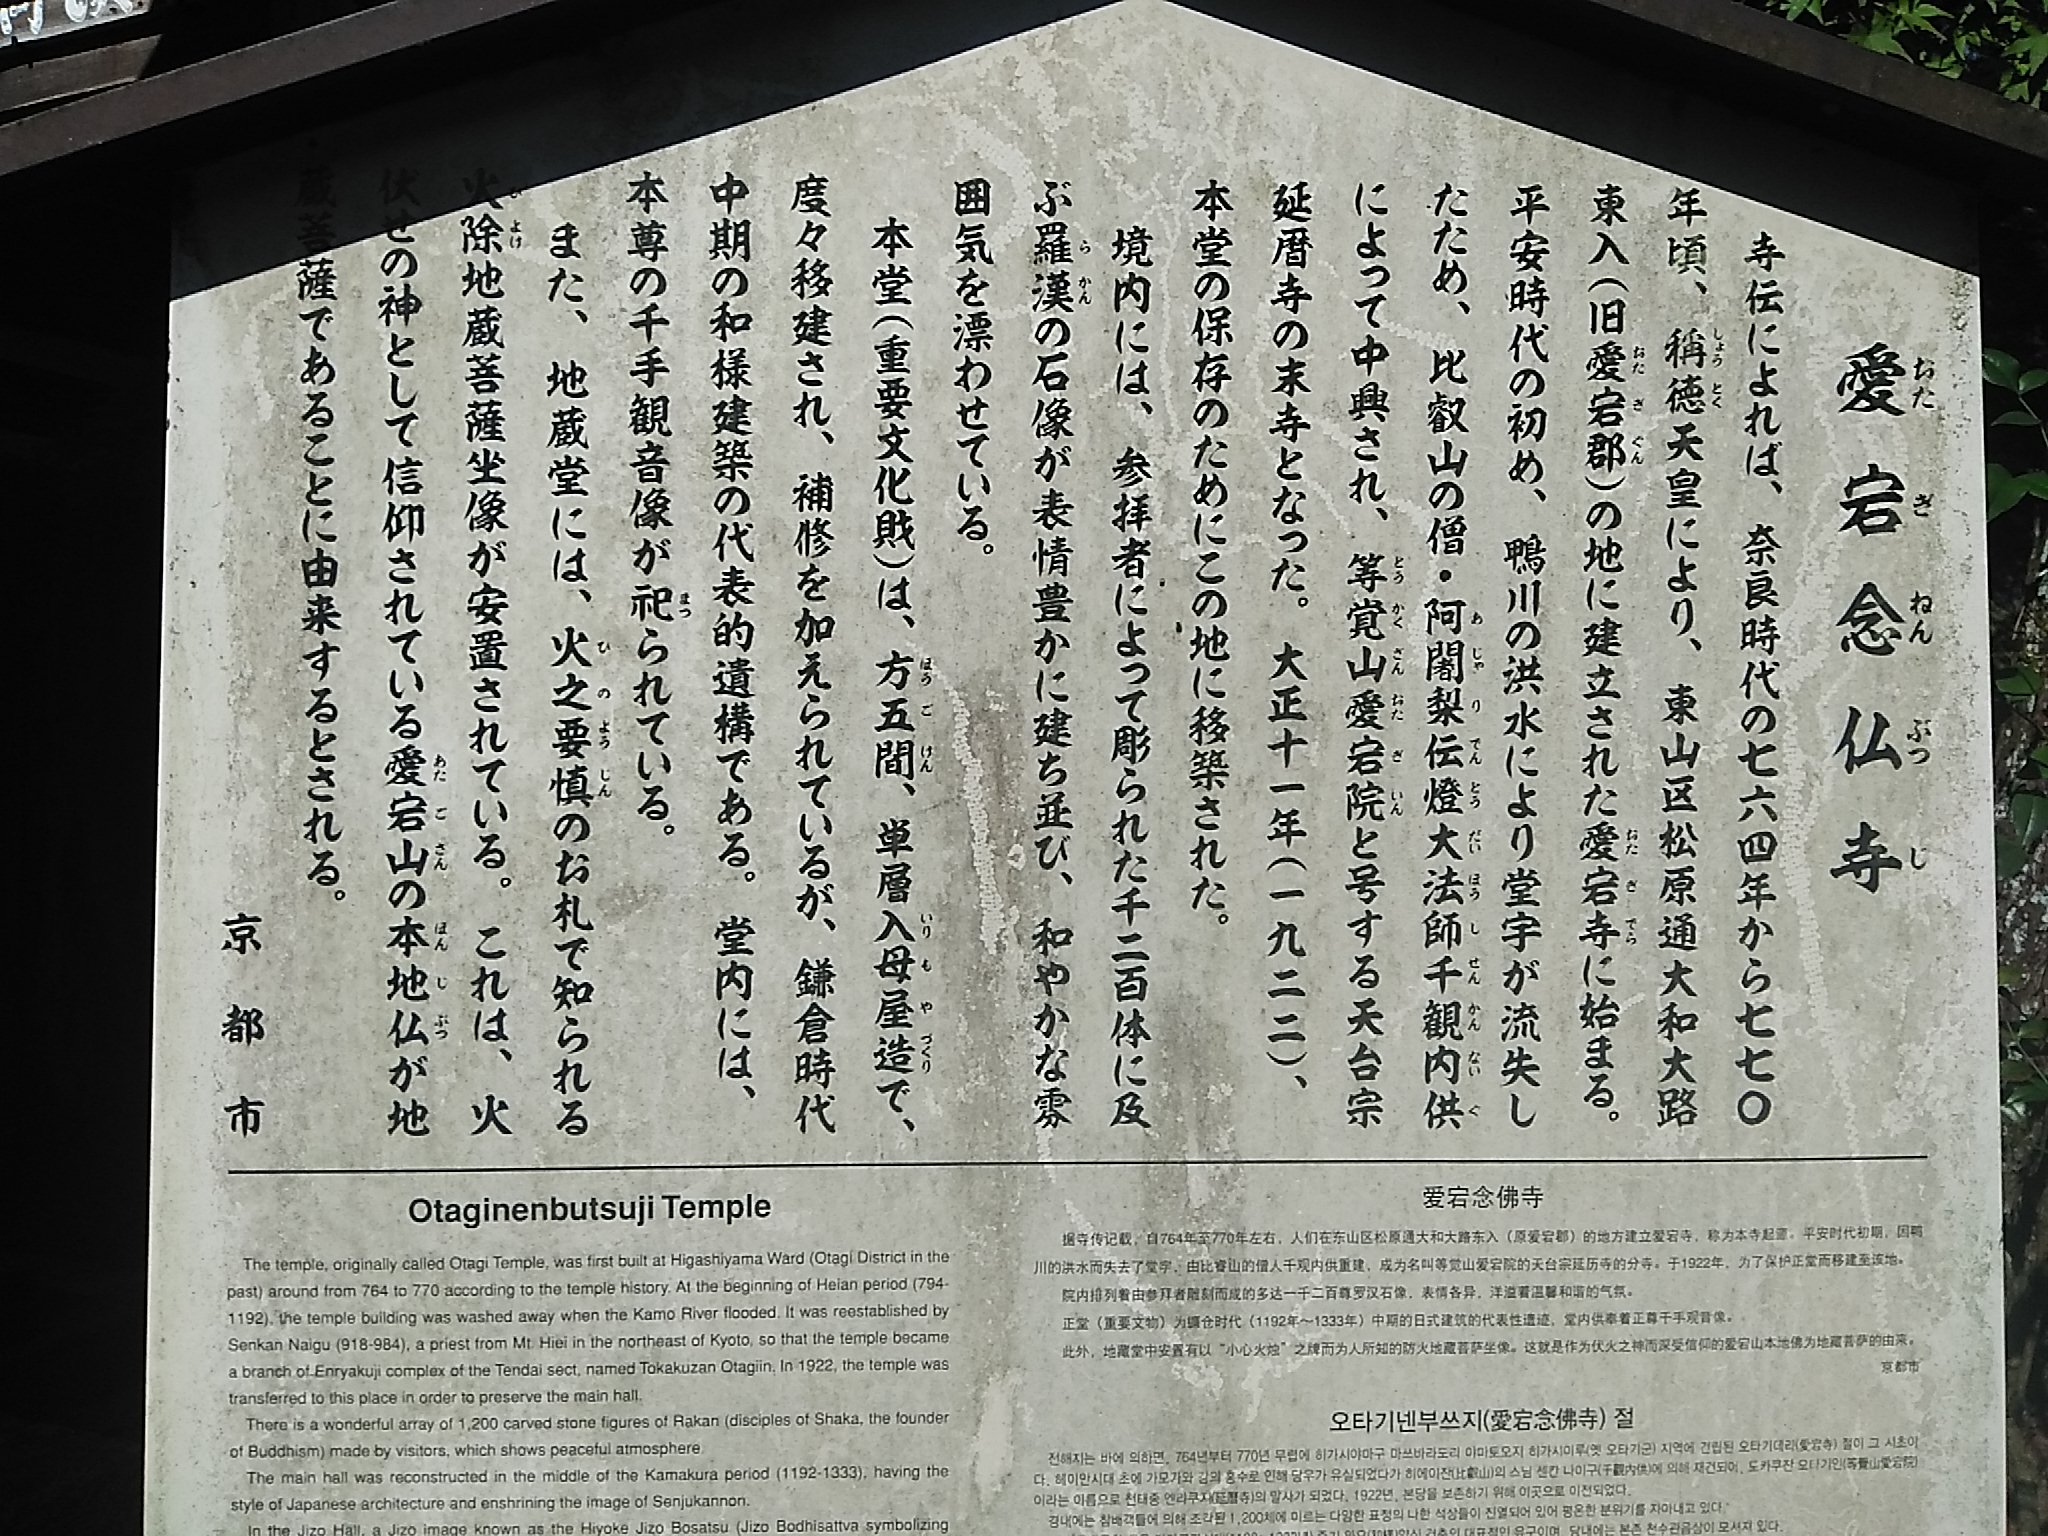 愛宕念仏寺
おた ぎ ねん ぶつ じ
寺伝によれば、奈良時代の七六四年から七七〇
年頃、稱徳天皇により、東山区松原通大和大路
しょう とく
東入(旧愛宕郡)の地に建立された愛宕寺に始まる。
おた ぎ ぐん おた ぎ でら
平安時代の初め、鴨川の洪水により堂宇が流失し
たため、比叡山の僧・阿闍梨伝燈大法師千観内供
あ じゃ り でん とう だい ほう し せん かん ない ぐ
によって中興され、等覚山愛宕院と号する天台宗
とう かく ざん おた ぎ いん
延暦寺の末寺となった。大正十一年(一九二二)、
本堂の保存のためにこの地に移築された。
境内には、参拝者によって彫られた千二百体に及
ぶ羅漢の石像が表情豊かに建ち並び、和やかな雰
ら かん
囲気を漂わせている。
本堂(重要文化財)は、方五間、単層入母屋造で、
ほう ご けん いり も や づくり
度々移建され、補修を加えられているが、鎌倉時代
中期の和様建築の代表的遺構である。堂内には、
本尊の千手観音像が祀られている。
ほつ
また、地蔵堂には、火之要慎のお札で知られる
ひ の よう じん
火除地蔵菩薩坐像が安置されている。これは、火
ひ よけ
伏せの神として信仰されている愛宕山の本地仏が地
あた ご さん ほん じ ぶつ
蔵菩薩であることに由来するとされる。
京都市
Otaginenbutsuji Temple
The temple, originally called Otagi Temple, was first built at Higashiyama Ward (Otagi District in the
past) around from 764 to 770 according to the temple history. At the beginning of Heian period (794-
1192), the temple building was washed away when the Kamo River flooded. It was reestablished by
Senkan Naigu (918-984), a priest from Mt. Hiei in the northeast of Kyoto, so that the temple became
a branch of Enryakuji complex of the Tendai sect, named Tokakuzan Otagiin. In 1922, the temple was
transferred to this place in order to preserve the main hall.
There is a wonderful array of 1,200 carved stone figures of Rakan (disciples of Shaka, the founder
of Buddhism) made by visitors, which shows peaceful atmosphere.
The main hall was reconstructed in the middle of the Kamakura period (1192-1333), having the
style of Japanese architecture and enshrining the image of Senjukannon.
In the Jizo Hall, a Jizo image known as the Hiyoke Jizo Bosatsu (Jizo Bodhisattva symbolizing
爱宕念佛寺
据寺传记载，自764年至770年左右，人们在东山区松原通大和大路东入（原爱宕郡）的地方建立爱宕寺，称为本寺起源。平安时代初期，因鸭
川的洪水而失去了堂宇，由比睿山的僧人千观内供重建，成为名叫等觉山爱宕院的天台宗延历寺的分寺。于1922年，为了保护正堂而移建至该地。
院内排列着由参拜者雕刻而成的多达一千二百尊罗汉石像，表情各异，洋溢着温馨和谐的气氛。
正堂（重要文物）为镰仓时代（1192年～1333年）中期的日式建筑的代表性遗迹，堂内供奉着正尊千手观音像。
此外，地藏堂中安置有以“小心火烛”之牌而为人所知的防火地藏菩萨坐像。这就是作为伏火之神而深受信仰的爱宕山本地佛为地藏菩萨的由来。
京都市
오타기넨부쓰지(愛宕念佛寺) 절
전해지는 바에 의하면, 764년부터 770년 무렵에 히가시야마구 마쓰바라도리 야마토오지 히가시이루(옛 오타기군) 지역에 건립된 오타기데라(愛宕寺) 절이 그 시초이
다. 헤이안시대 초에 가모가와 강의 홍수로 인해 당우가 유실되었다가 히에이잔(比叡山)의 스님 센칸 나이구(千觀內供)에 의해 재건되어, 도카쿠잔 오타기인(等覺山愛宕院)
이라는 이름으로 천태종 엔랴쿠지(延曆寺)의 말사가 되었다. 1922년, 본당을 보존하기 위해 이곳으로 이전되었다.
경내에는 참배객들에 의해 조각된 1,200체에 이르는 다양한 표정의 나한 석상들이 진열되어 있어 평온한 분위기를 자아내고 있다.